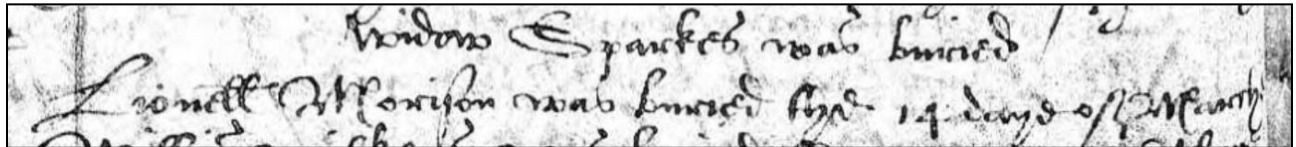 widow Sparkes was buried
Lionell Morison was buried the 14 daye of March